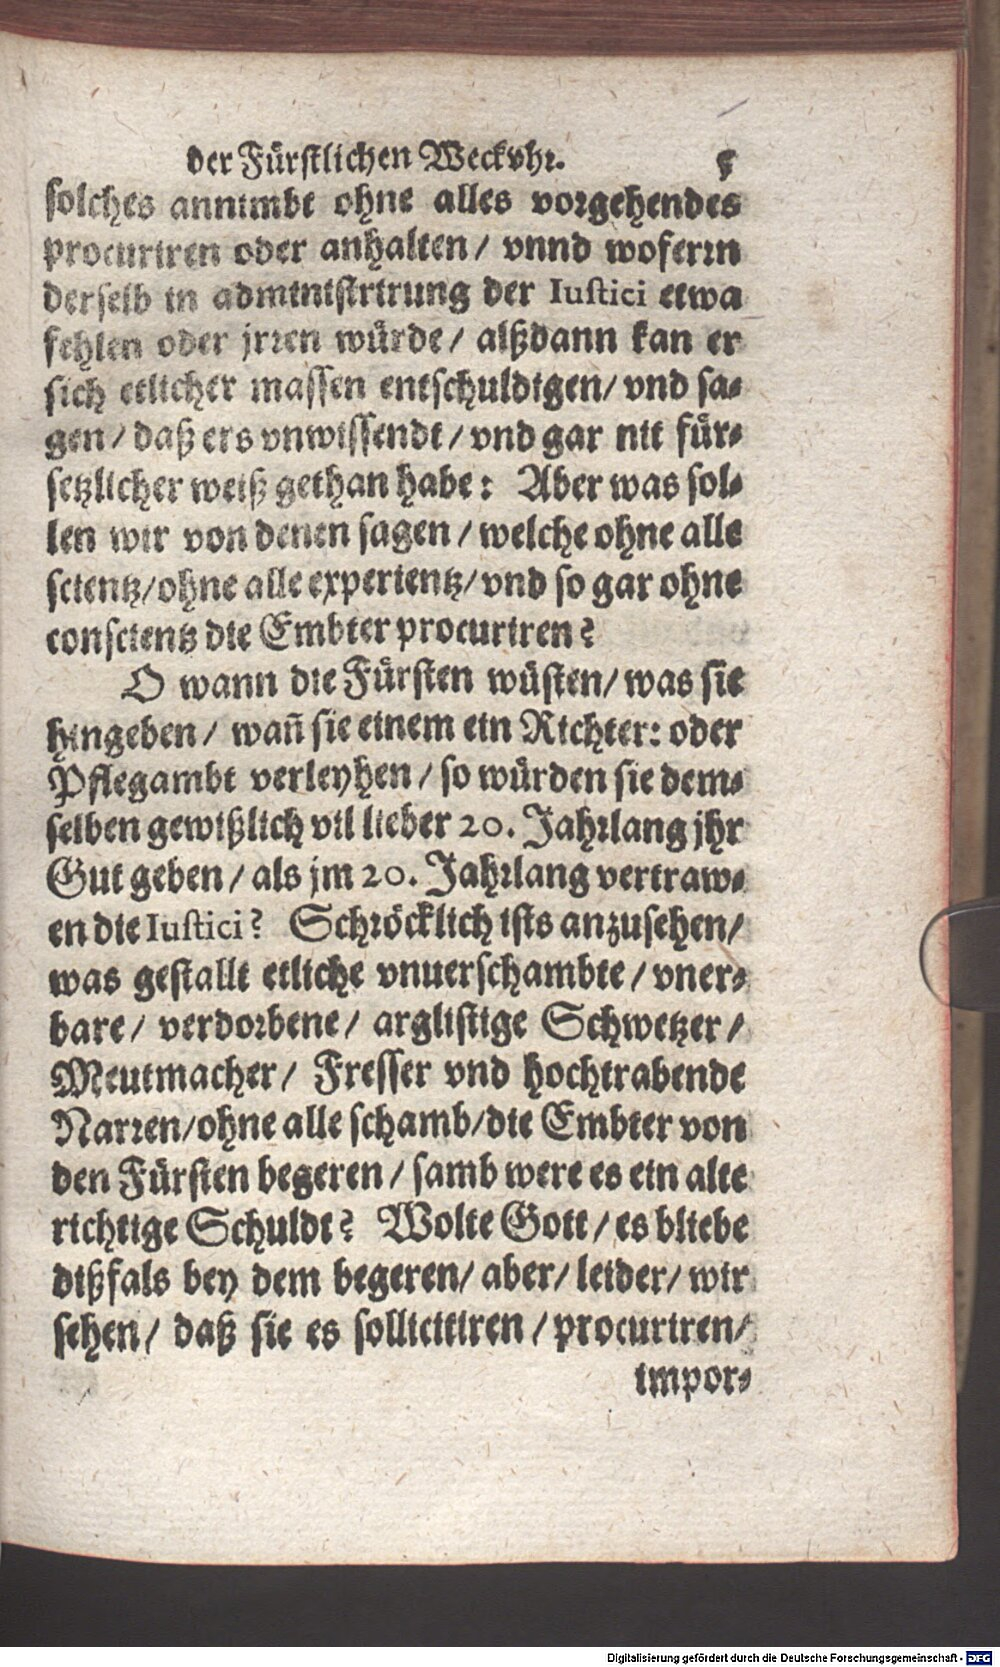 der Fürstlichen Weckvhr. 5
solches annimbt ohne alles vorgehendes
procuriren oder anhalten / vnnd woferrn
derselb in administrirung der Iustici etwa
fehlen oder jrren würde / alßdann kan er
sich etlicher massen entschuldigen / vnd sa-
gen / daß ers vnwissendt / vnd gar nit für-
setzlicher weiß gethan habe: Aber was sol-
len wir von denen sagen / welche ohne alle
scientz / ohne alle experientz / vnd so gar ohne
conscientz die Embter procuriren?
O wann die Fürsten wüsten / was sie
hingeben / wañ sie einem ein Richter: oder
Pflegambt verleyhen / so würden sie dem-
selben gewißlich vil lieber 20. Jahrlang jhr
Gut geben / als jm 20. Jahrlang vertraw-
en die Iustici? Schröcklich ists anzusehen /
was gestallt etliche vnuerschambte / vner-
bare / verdorbene / arglistige Schwetzer /
Meutmacher / Fresser vnd hochtrabende
Narren / ohne alle schamb / die Embter von
den Fürsten begeren / samb were es ein alte
richtige Schuldt? Wolte Gott / es bliebe
dißfals bey dem begeren / aber / leider / wir
sehen / daß sie es sollicitiren / procuriren /
impor-
Digitalisierung gefördert durch die Deutsche Forschungsgemeinschaft - DFG